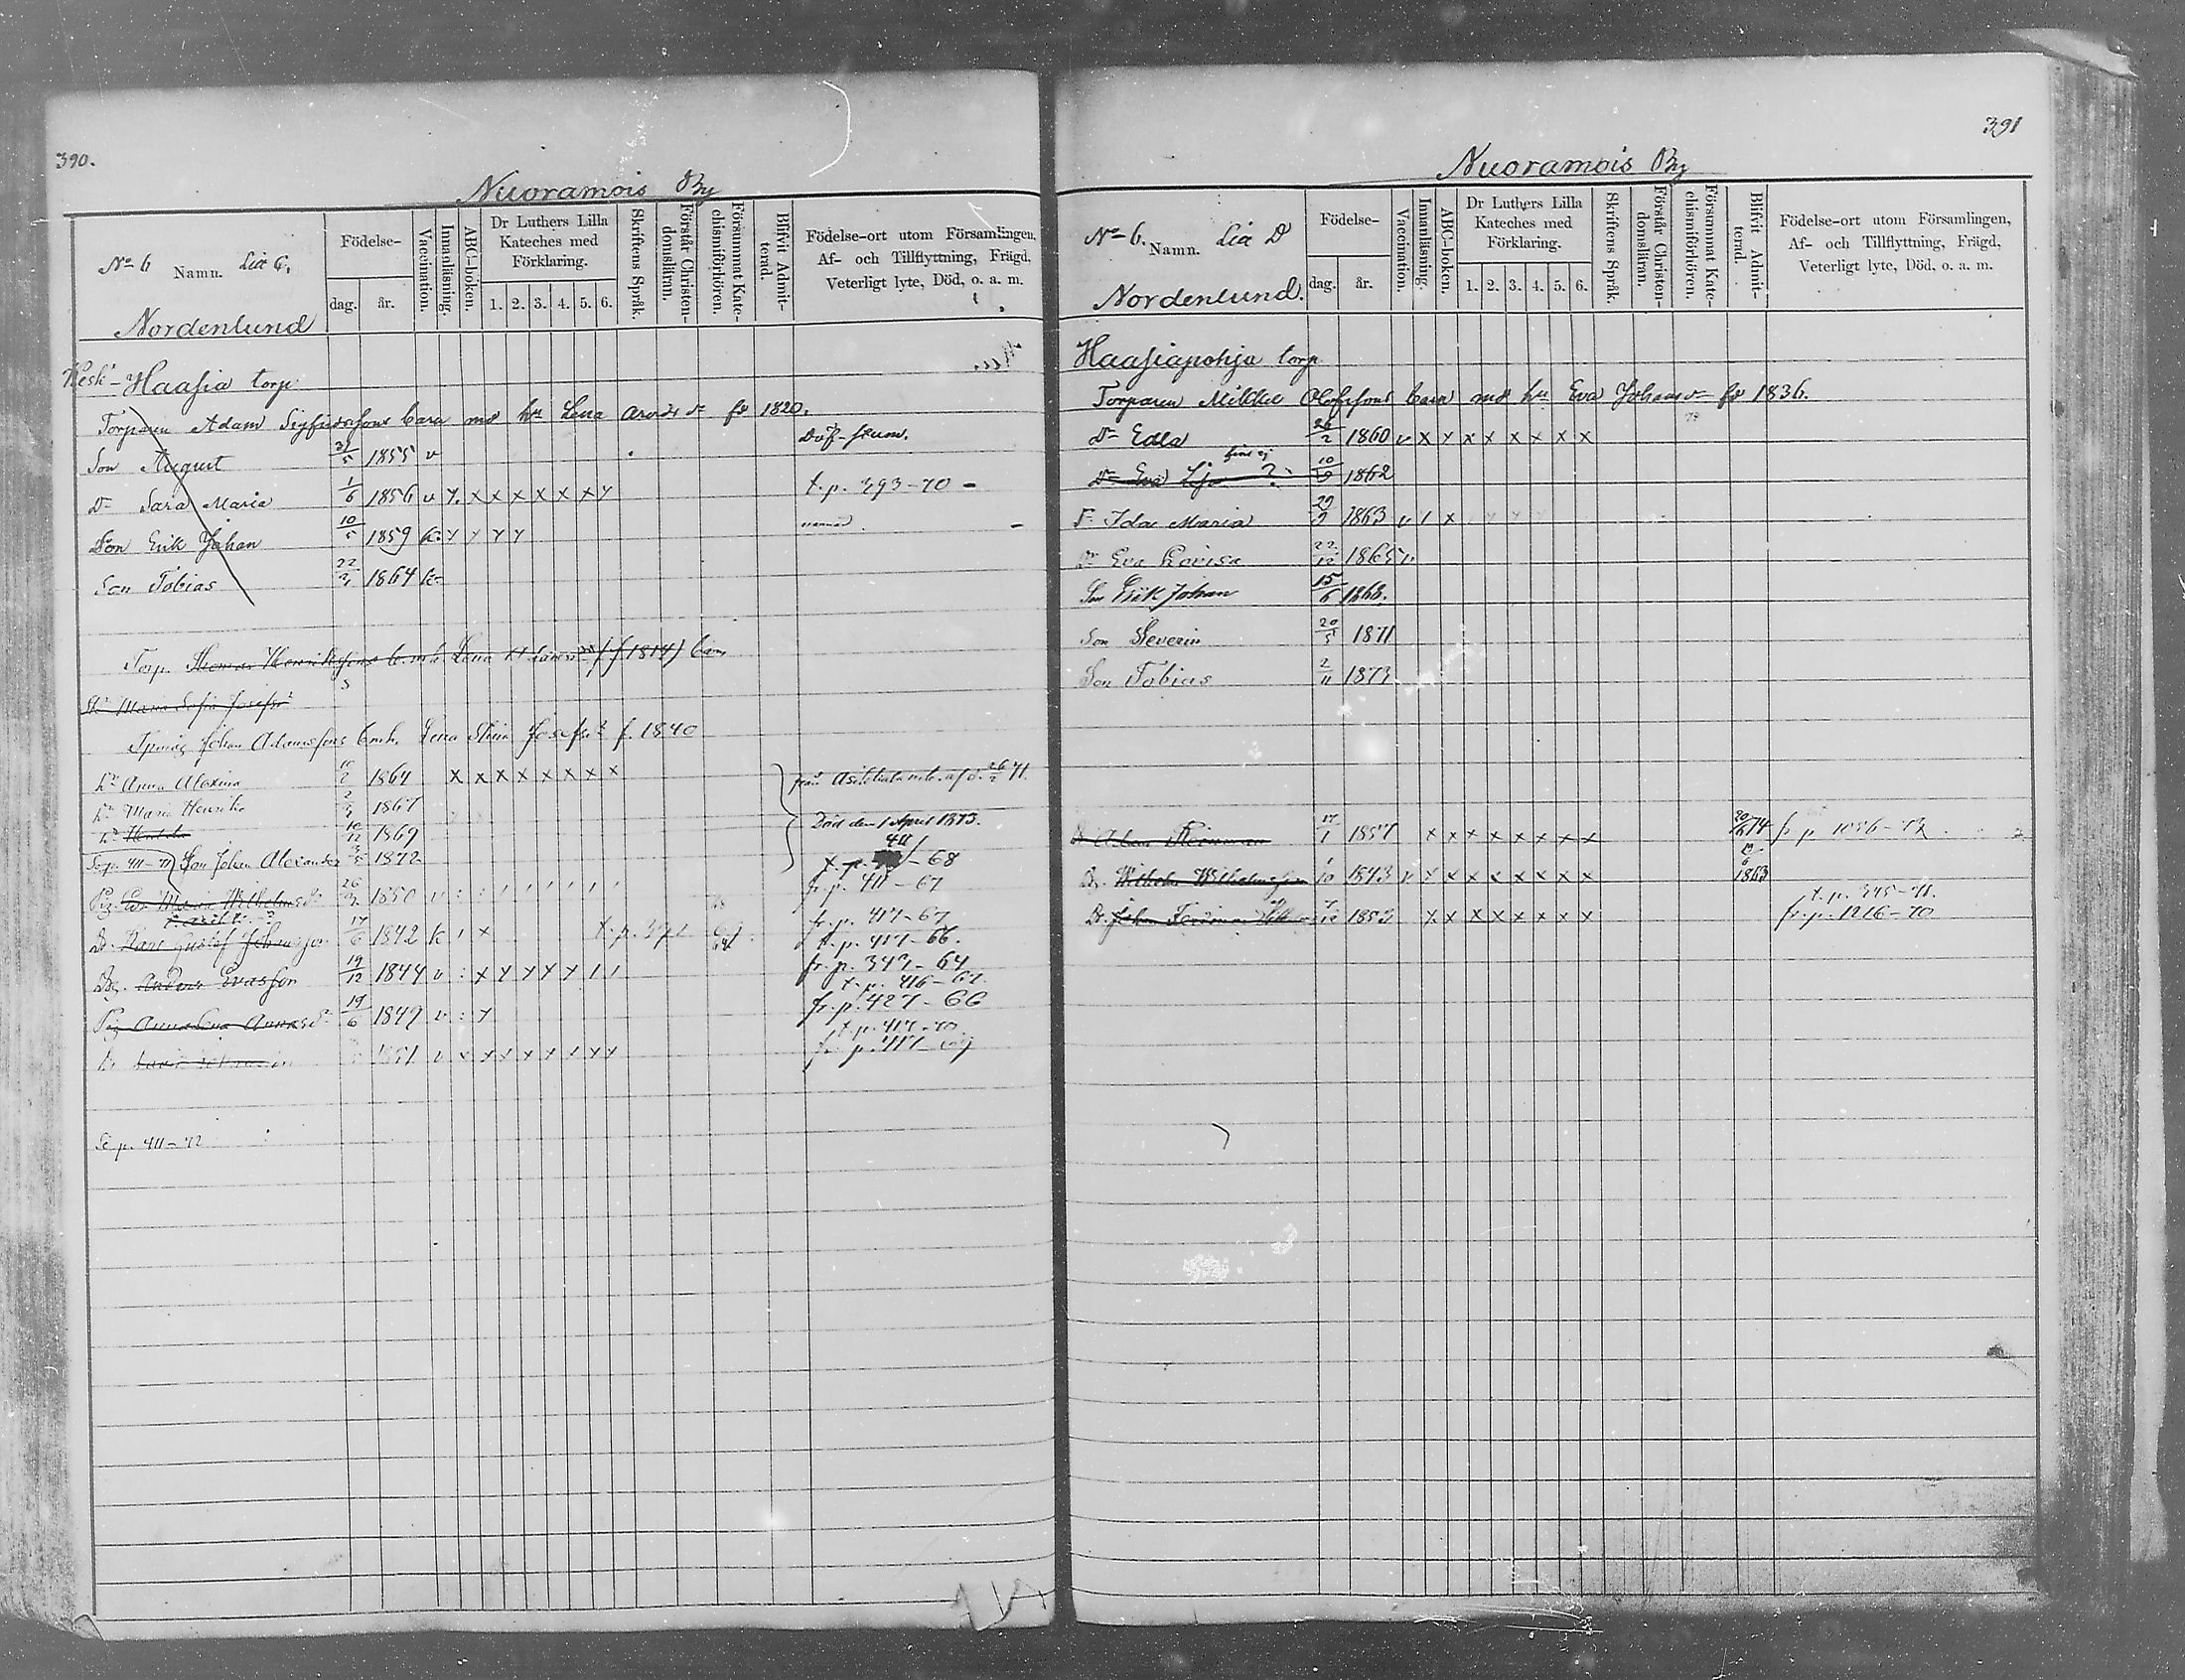 390.
Nuoramois By
No 6 Namn. Litt C.
Nordenlund
Födelse-
dag. år.
Vaccination.
Innanläsning.
ABC-boken.
Dr Luthers Lilla Kateches med Förklaring.
1. 2. 3. 4. 5. 6.
Skriftens Språk.
Förstår Christendomsläran.
Försummat Katechismiförhören.
Blifvit Admitterad.
Födelse-ort utom Församlingen,
Af- och Tillflyttning, Frägd,
Veterligt lyte, Död, o. a. m.
Keski-Haasia torp
Torparen Adam Sigfridssons barn med hu Lena dr fö 1820.
Son August 31/5 1855 v Döf-stum.
Dr Sara Maria 1/6 1856 v x x x x x x x t. p. 393-70
Son Erik Johan 10/5 1859
Son Tobias 22/3 1864
Torp. Thomas Henrikssons b. m. h. Lena (f. 1814) barn
Maria Sofia Josefsdr
Johan Adamssons b m h. Lena Stina Josefsdr f. 1840
Dr Anna Alexina 10/2 1864 x x x x x x x x från Asikkala enl. af d. 26/2 71.
Dr Maria Henrika 2/3 1867
1869 Död den 1 April 1873.
Se p. 411-71 Son Johan Alexander 1872
411
t. p. -68
Pig. Eva Maria Wilhelmsdr 26/3 1850 v fr. p. 411-67
Dr. Karl Gustaf Johansson 17/6 1842 fr. p. 417-67
t. p. 417-66.
Drg. Anders Evasson 19/12 1844 v fr. p. 343-64
t. p. 416-67.
Pig Anna Lena Annasdr 19/6 1849 v fr. p. 427-66
t. p. 417-70
1851 v fr. p. 417-69
Se p. 411-72
391
Nuoramois By
No 6. Namn. Litt D
Nordenlund.
Födelse-
dag. år.
Vaccination.
Innanläsning.
ABC-boken.
Dr Luthers Lilla Kateches med Förklaring.
1. 2. 3. 4. 5. 6.
Skriftens Språk.
Förstår Christendomsläran.
Försummat Katechismiförhören.
Blifvit Admitterad.
Födelse-ort utom Församlingen,
Af- och Tillflyttning, Frägd,
Veterligt lyte, Död, o. a. m.
Haasiapohja torp.
Torparen Olofssons barn med hu Eva Johansdr fö 1836.
Dr Edla 26/2 1860 v x x x x x x x x
finns ej
Dr Eva ? 1862
Dr Ida Maria 29/9 1863 v
Dr Eva Lovisa 22/12 1865 v.
Son Erik Johan 15/6 1868.
Son Severin 20/5 1871
Son Tobias 2/11 1873
17/1 1857 x x x x x x x x fr p 1056-73
Dr. Wilhelm Wilhelmsson 1/10 1843 v x x x x x x x x 1863
t. p. 345-71.
Dr. Johan 1853 x x x x x x x x fr. p. 1216-70